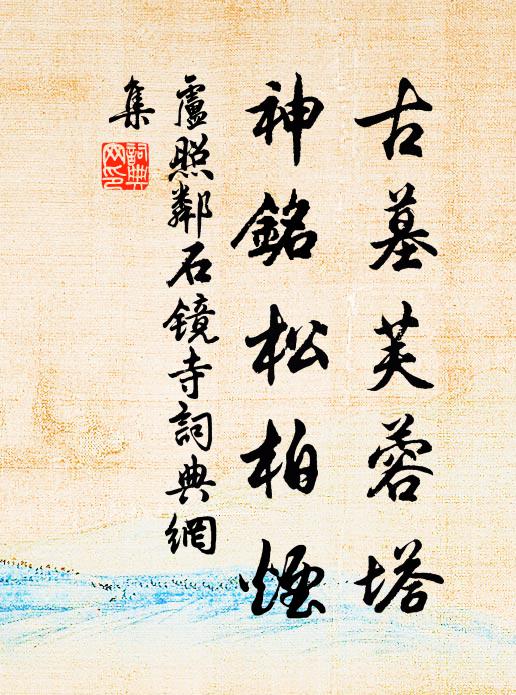 古墓芙蓉塔
神銘松柏煙
盧照鄰石鏡寺詞典網
集
詞典
网印